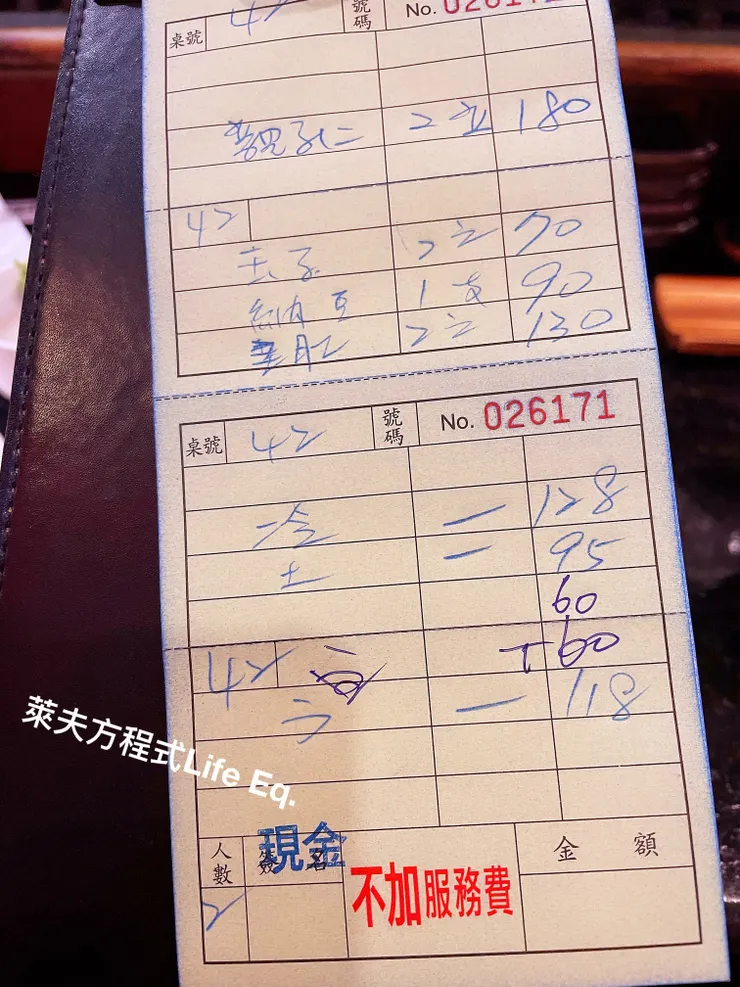 桌號 42 號碼 No. 02617
2立 180
42
玉子 2立 70
納豆 1支 90
2立 130
桌號 42 號碼 No. 026171
冷 一 128
土 一 95
60
42 +60
一 118
萊夫方程式Life Eq.
人數 簽名 現金 金額
2 不加服務費